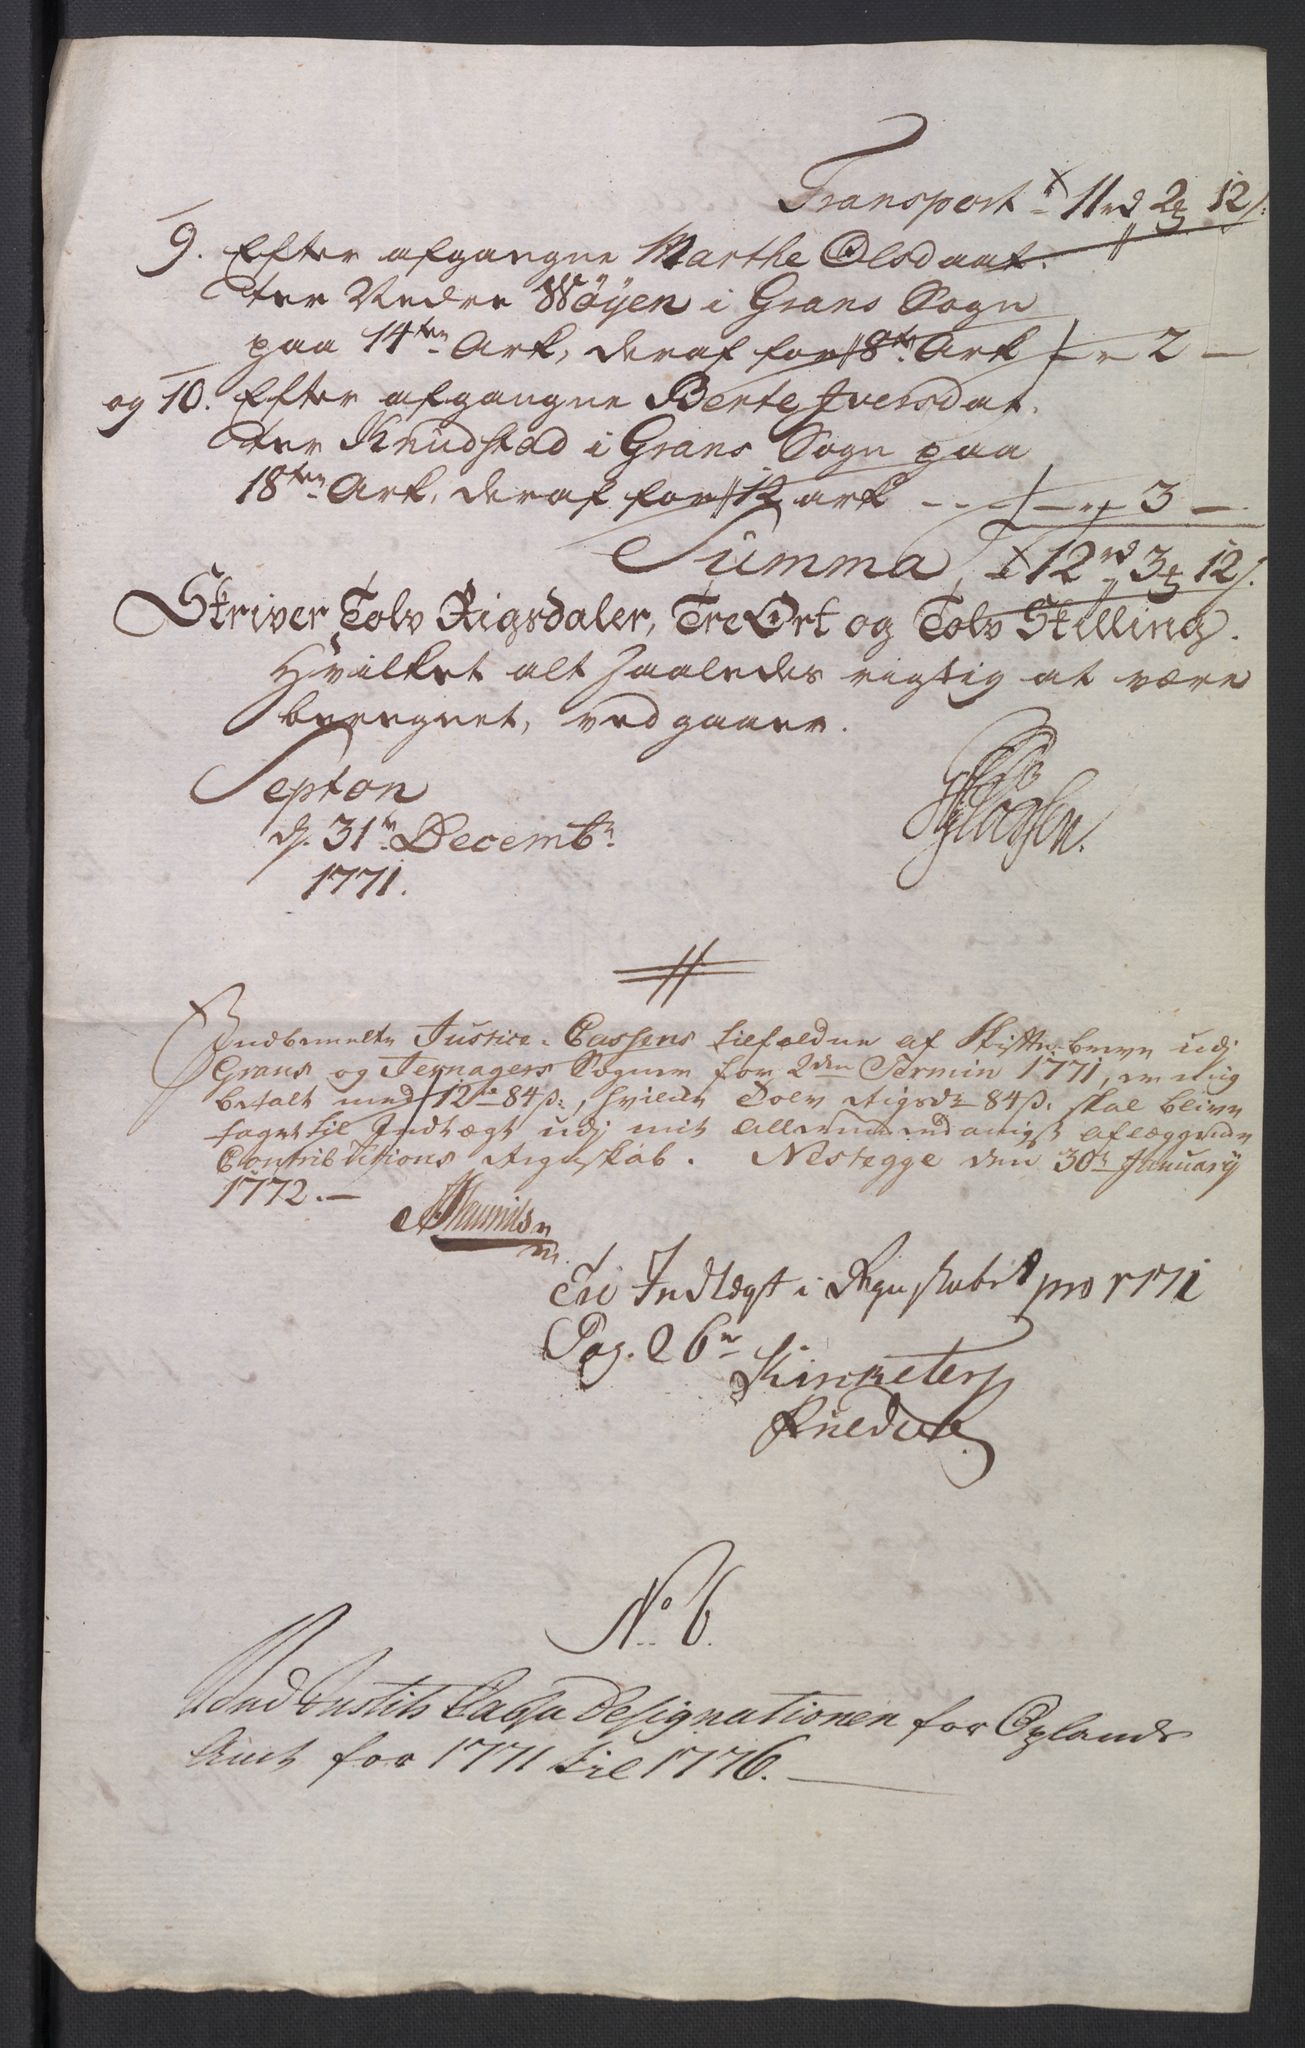 Transport - 11 rd 2 ₰ 12 /:
9. Efter afgangne Marthe Olsdaat-
ter Nedre Wøyen i Grans Sogn
paa 14ten Ark, deraf for 8te Ark - 2 -
og 10. Efter afgangne Berte Iversdat-
ter Knudstad i Grans Sogn paa
18ten Ark, deraf for 12 ark - - - 3 -
Summa 12 rd 3 ₰ 12 /.
Skriver Tolv Rigsdaler, Tre Ort og Tolv Skilling.
Hvilket alt saaledes rigtig at være
beregnet, vedgaaer.
Septon
d. 31te Decembr.
1771.
Indbemelte Justice-Cassens tilfaldne af Skifte-breve udj
Grans og Jevnagers Sogner for 2den Termin 1771, er mig
betalt med 12 rd 84 ß:, hvilche Tolv Rigsdr 84 ß. skal blive
taget til Indtægt udj mit allerunderdanigst aflæggende
Contributions Regnskab. Nestegge den 30te January
1772. -
Til Indtægt i Regnskabet pro 1771
Pag. 26
No. 6.
Ved Justits Cassa Designationen for Oplands
Amt for 1771 til 1776.